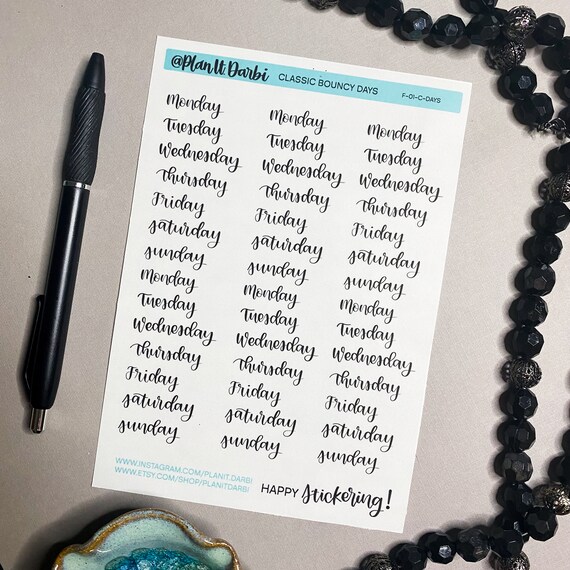 @Plan.It.Darbi CLASSIC BOUNCY DAYS F-01-C-DAYS
Monday Monday Monday
Tuesday Tuesday Tuesday
Wednesday Wednesday Wednesday
Thursday Thursday Thursday
Friday Friday Friday
Saturday Saturday Saturday
Sunday Sunday Sunday
Monday Monday Monday
Tuesday Tuesday Tuesday
Wednesday Wednesday Wednesday
Thursday Thursday Thursday
Friday Friday Friday
Saturday Saturday Saturday
Sunday Sunday Sunday
WWW.INSTAGRAM.COM/PLANIT.DARBI
WWW.ETSY.COM/SHOP/PLANITDARBI
HAPPY Stickering!